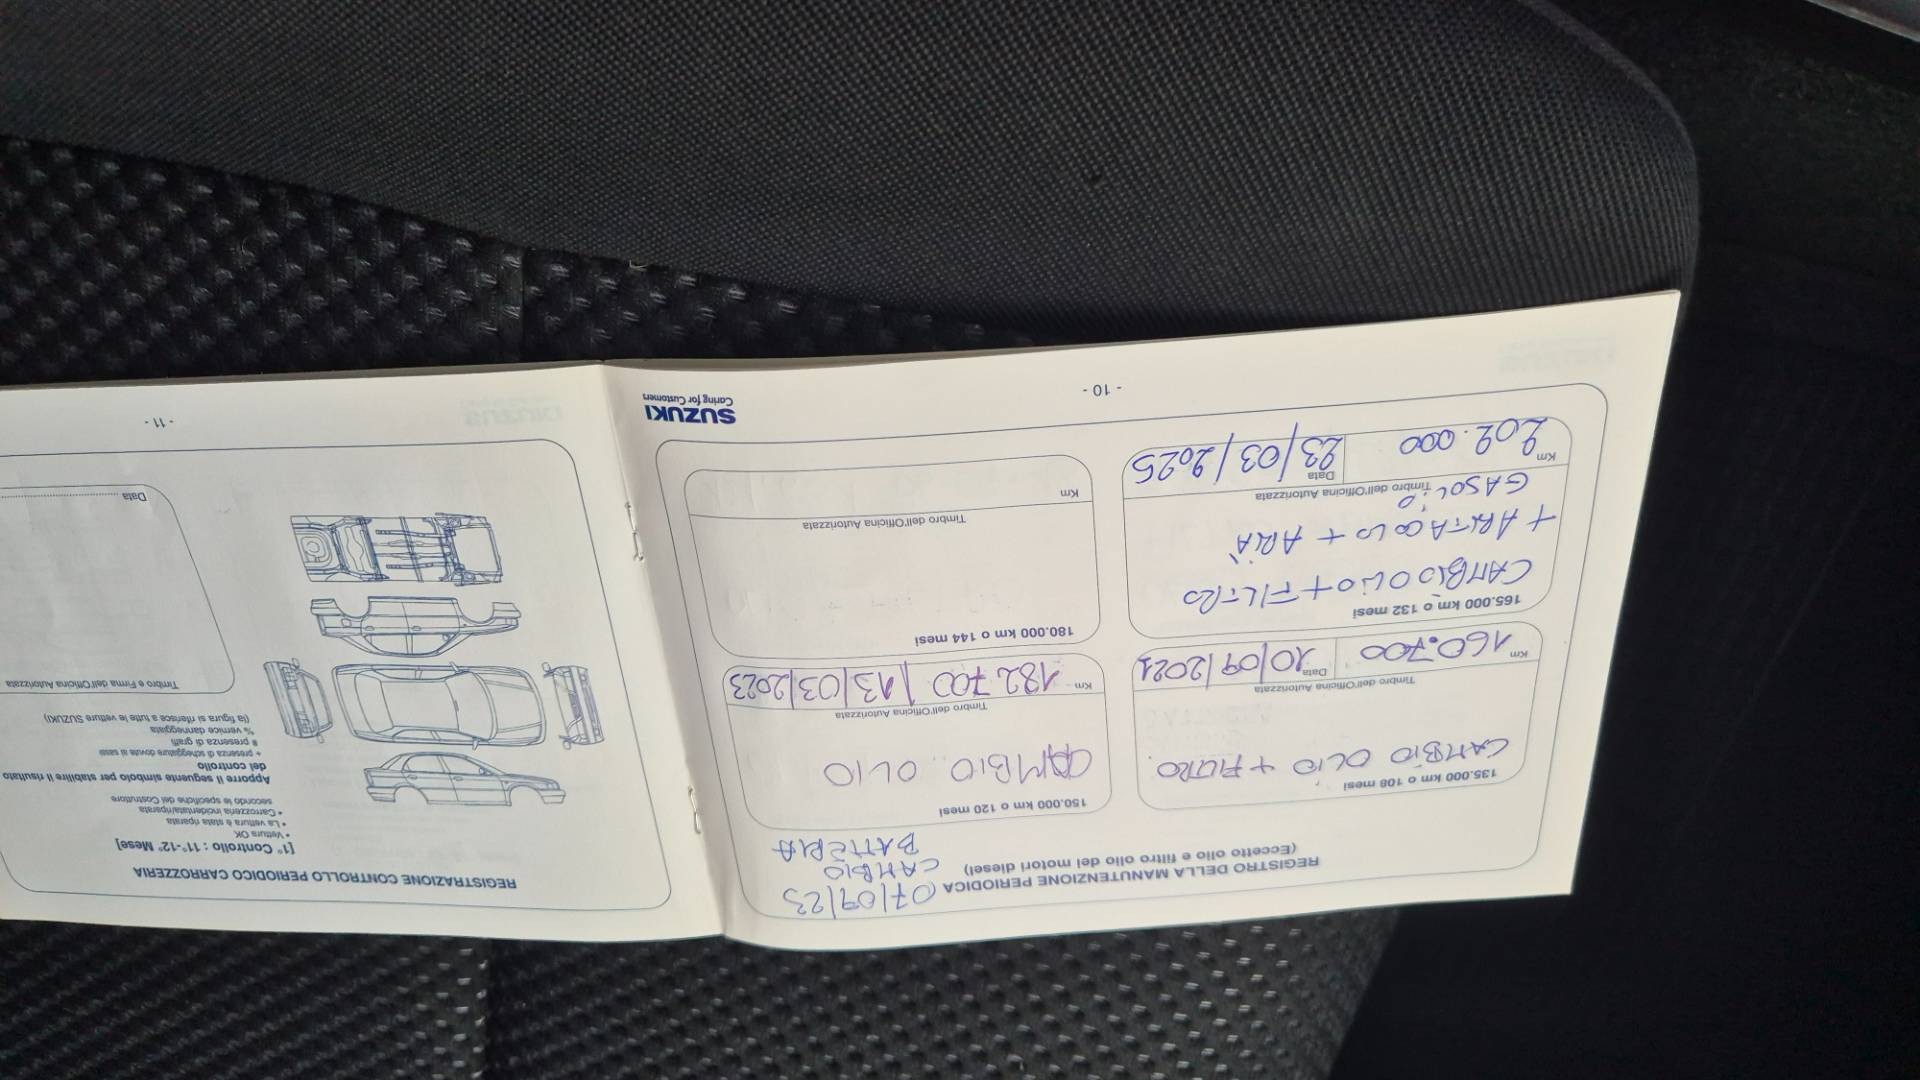 REGISTRO DELLA MANUTENZIONE PERIODICA
(Eccetto olio e filtro olio dei motori diesel)
07/09/23
CAMBIO
BATTERIA
135.000 km o 108 mesi
CAMBIO OLIO + FILTRO.
Timbro dell'Officina Autorizzata
Km
160.700
Data
10/09/2021
150.000 km o 120 mesi
CAMBIO OLIO
Timbro dell'Officina Autorizzata
Km
182.700 13/03/2023
165.000 km o 132 mesi
CAMBIO OLIO + FILTRO
+ ANTIACOLO + ARIA
GASOLIO
Timbro dell'Officina Autorizzata
Km
202.000
Data
23/03/2025
180.000 km o 144 mesi
Timbro dell'Officina Autorizzata
Km
- 10 -
SUZUKI
Caring for Customers
REGISTRAZIONE CONTROLLO PERIODICO CARROZZERIA
[1° Controllo : 11°-12° Mese]
• Vettura OK
• La vettura è stata riparata
• Carrozzeria incidentata/riparata
secondo le specifiche del Costruttore
Apporre il seguente simbolo per stabilire il risultato
del controllo
+ presenza di scheggiature dovute ai sassi
# presenza di graffi
% vernice danneggiata
(la figura si riferisce a tutte le vetture SUZUKI)
Timbro e Firma dell'Officina Autorizzata
Data
- 11 -